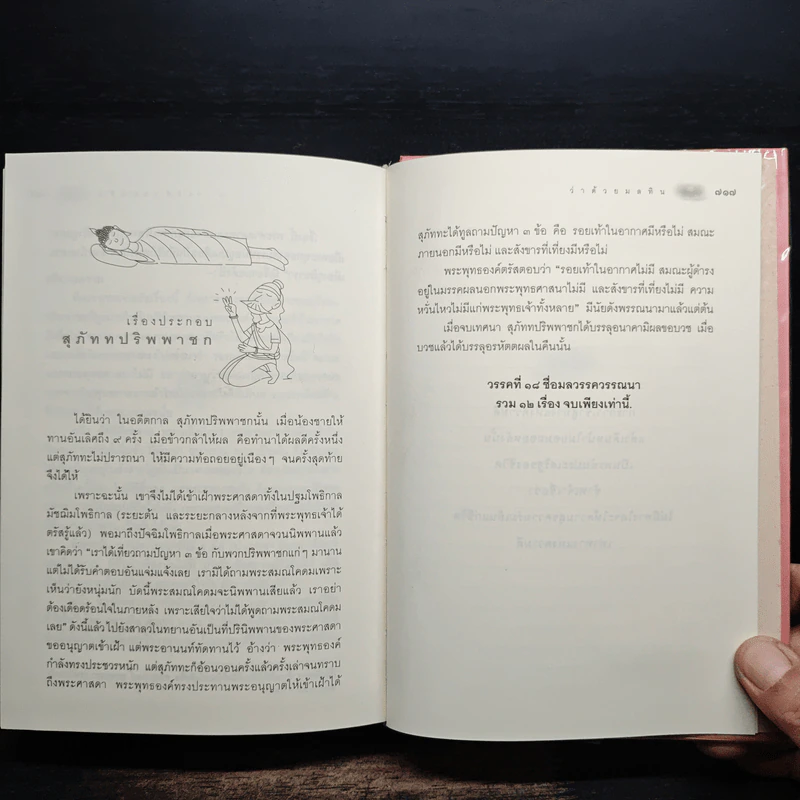 เรื่องประกอบ
สุภัททปริพพาชก
ได้ยินว่า ในอดีตกาล สุภัททปริพพาชกนั้น เมื่อน้องชายให้
ทานอันเลิศถึง ๙ ครั้ง เมื่อข้าวกล้าให้ผล คือทำนาได้ผลดีครั้งหนึ่ง
แต่สุภัททะไม่ปรารถนา ให้มีความท้อถอยอยู่เนืองๆ จนครั้งสุดท้าย
จึงได้ให้
เพราะฉะนั้น เขาจึงไม่ได้เข้าเฝ้าพระศาสดาทั้งในปฐมโพธิกาล
มัชฌิมโพธิกาล (ระยะต้น และระยะกลางหลังจากที่พระพุทธเจ้าได้
ตรัสรู้แล้ว) พอมาถึงปัจฉิมโพธิกาลเมื่อพระศาสดาจวนนิพพานแล้ว
เขาคิดว่า "เราได้เที่ยวถามปัญหา ๓ ข้อ กับพวกปริพพาชกแก่ๆ มานาน
แต่ไม่ได้รับคำตอบอันแจ่มแจ้งเลย เรามิได้ถามพระสมณโคดมเพราะ
เห็นว่ายังหนุ่มนัก บัดนี้พระสมณโคดมจะนิพพานเสียแล้ว เราอย่า
ต้องเดือดร้อนใจในภายหลัง เพราะเสียใจว่าไม่ได้พูดถามพระสมณโคดม
เลย" ดังนี้แล้วไปยังสาลวโนทยานอันเป็นที่ปรินิพพานของพระศาสดา
ขออนุญาตเข้าเฝ้า แต่พระอานนท์ทัดทานไว้ อ้างว่า พระพุทธองค์
กำลังทรงประชวรหนัก แต่สุภัททะก็อ้อนวอนครั้งแล้วครั้งเล่าจนทราบ
ถึงพระศาสดา พระพุทธองค์ทรงประทานพระอนุญาตให้เข้าเฝ้าได้
ว่าด้วยมลทิน ๗๑๗
สุภัททะได้ทูลถามปัญหา ๓ ข้อ คือ รอยเท้าในอากาศมีหรือไม่ สมณะ
ภายนอกมีหรือไม่ และสังขารที่เที่ยงมีหรือไม่
พระพุทธองค์ตรัสตอบว่า "รอยเท้าในอากาศไม่มี สมณะผู้ดำรง
อยู่ในมรรคผลนอกพระพุทธศาสนาไม่มี และสังขารที่เที่ยงไม่มี ความ
หวั่นไหวไม่มีแก่พระพุทธเจ้าทั้งหลาย" มีนัยดังพรรณนามาแล้วแต่ต้น
เมื่อจบเทศนา สุภัททปริพพาชกได้บรรลุอนาคามิผลขอบวช เมื่อ
บวชแล้วได้บรรลุอรหัตตผลในคืนนั้น
วรรคที่ ๑๘ ชื่อมลวรรควรรณนา
รวม ๑๒ เรื่อง จบเพียงเท่านี้.